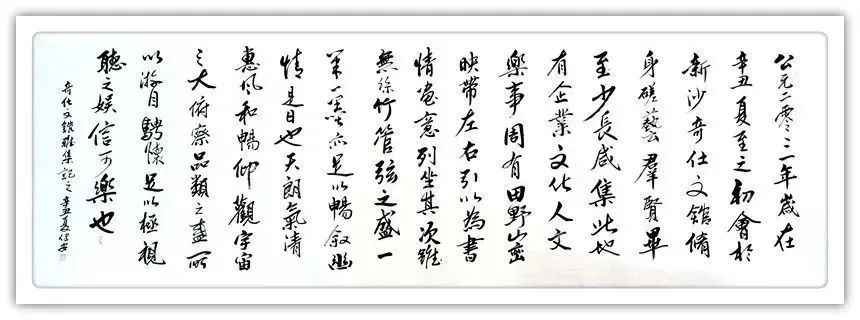 公元二零二一年歲在
辛丑夏至之初會於
新沙奇仕文館脩
身磋藝羣賢畢
至少長咸集此地
有企業文化人文
樂事周有田野山巒
映帶左右引以為書
情畫意列坐其次雖
無絲竹管弦之盛一
筆一墨亦足以暢叙幽
情是日也天朗氣清
惠風和暢仰觀宇宙
之大俯察品類之盛所
以游目騁懷足以極視
聽之娛信可樂也
奇仕文館雅集記之 辛丑夏